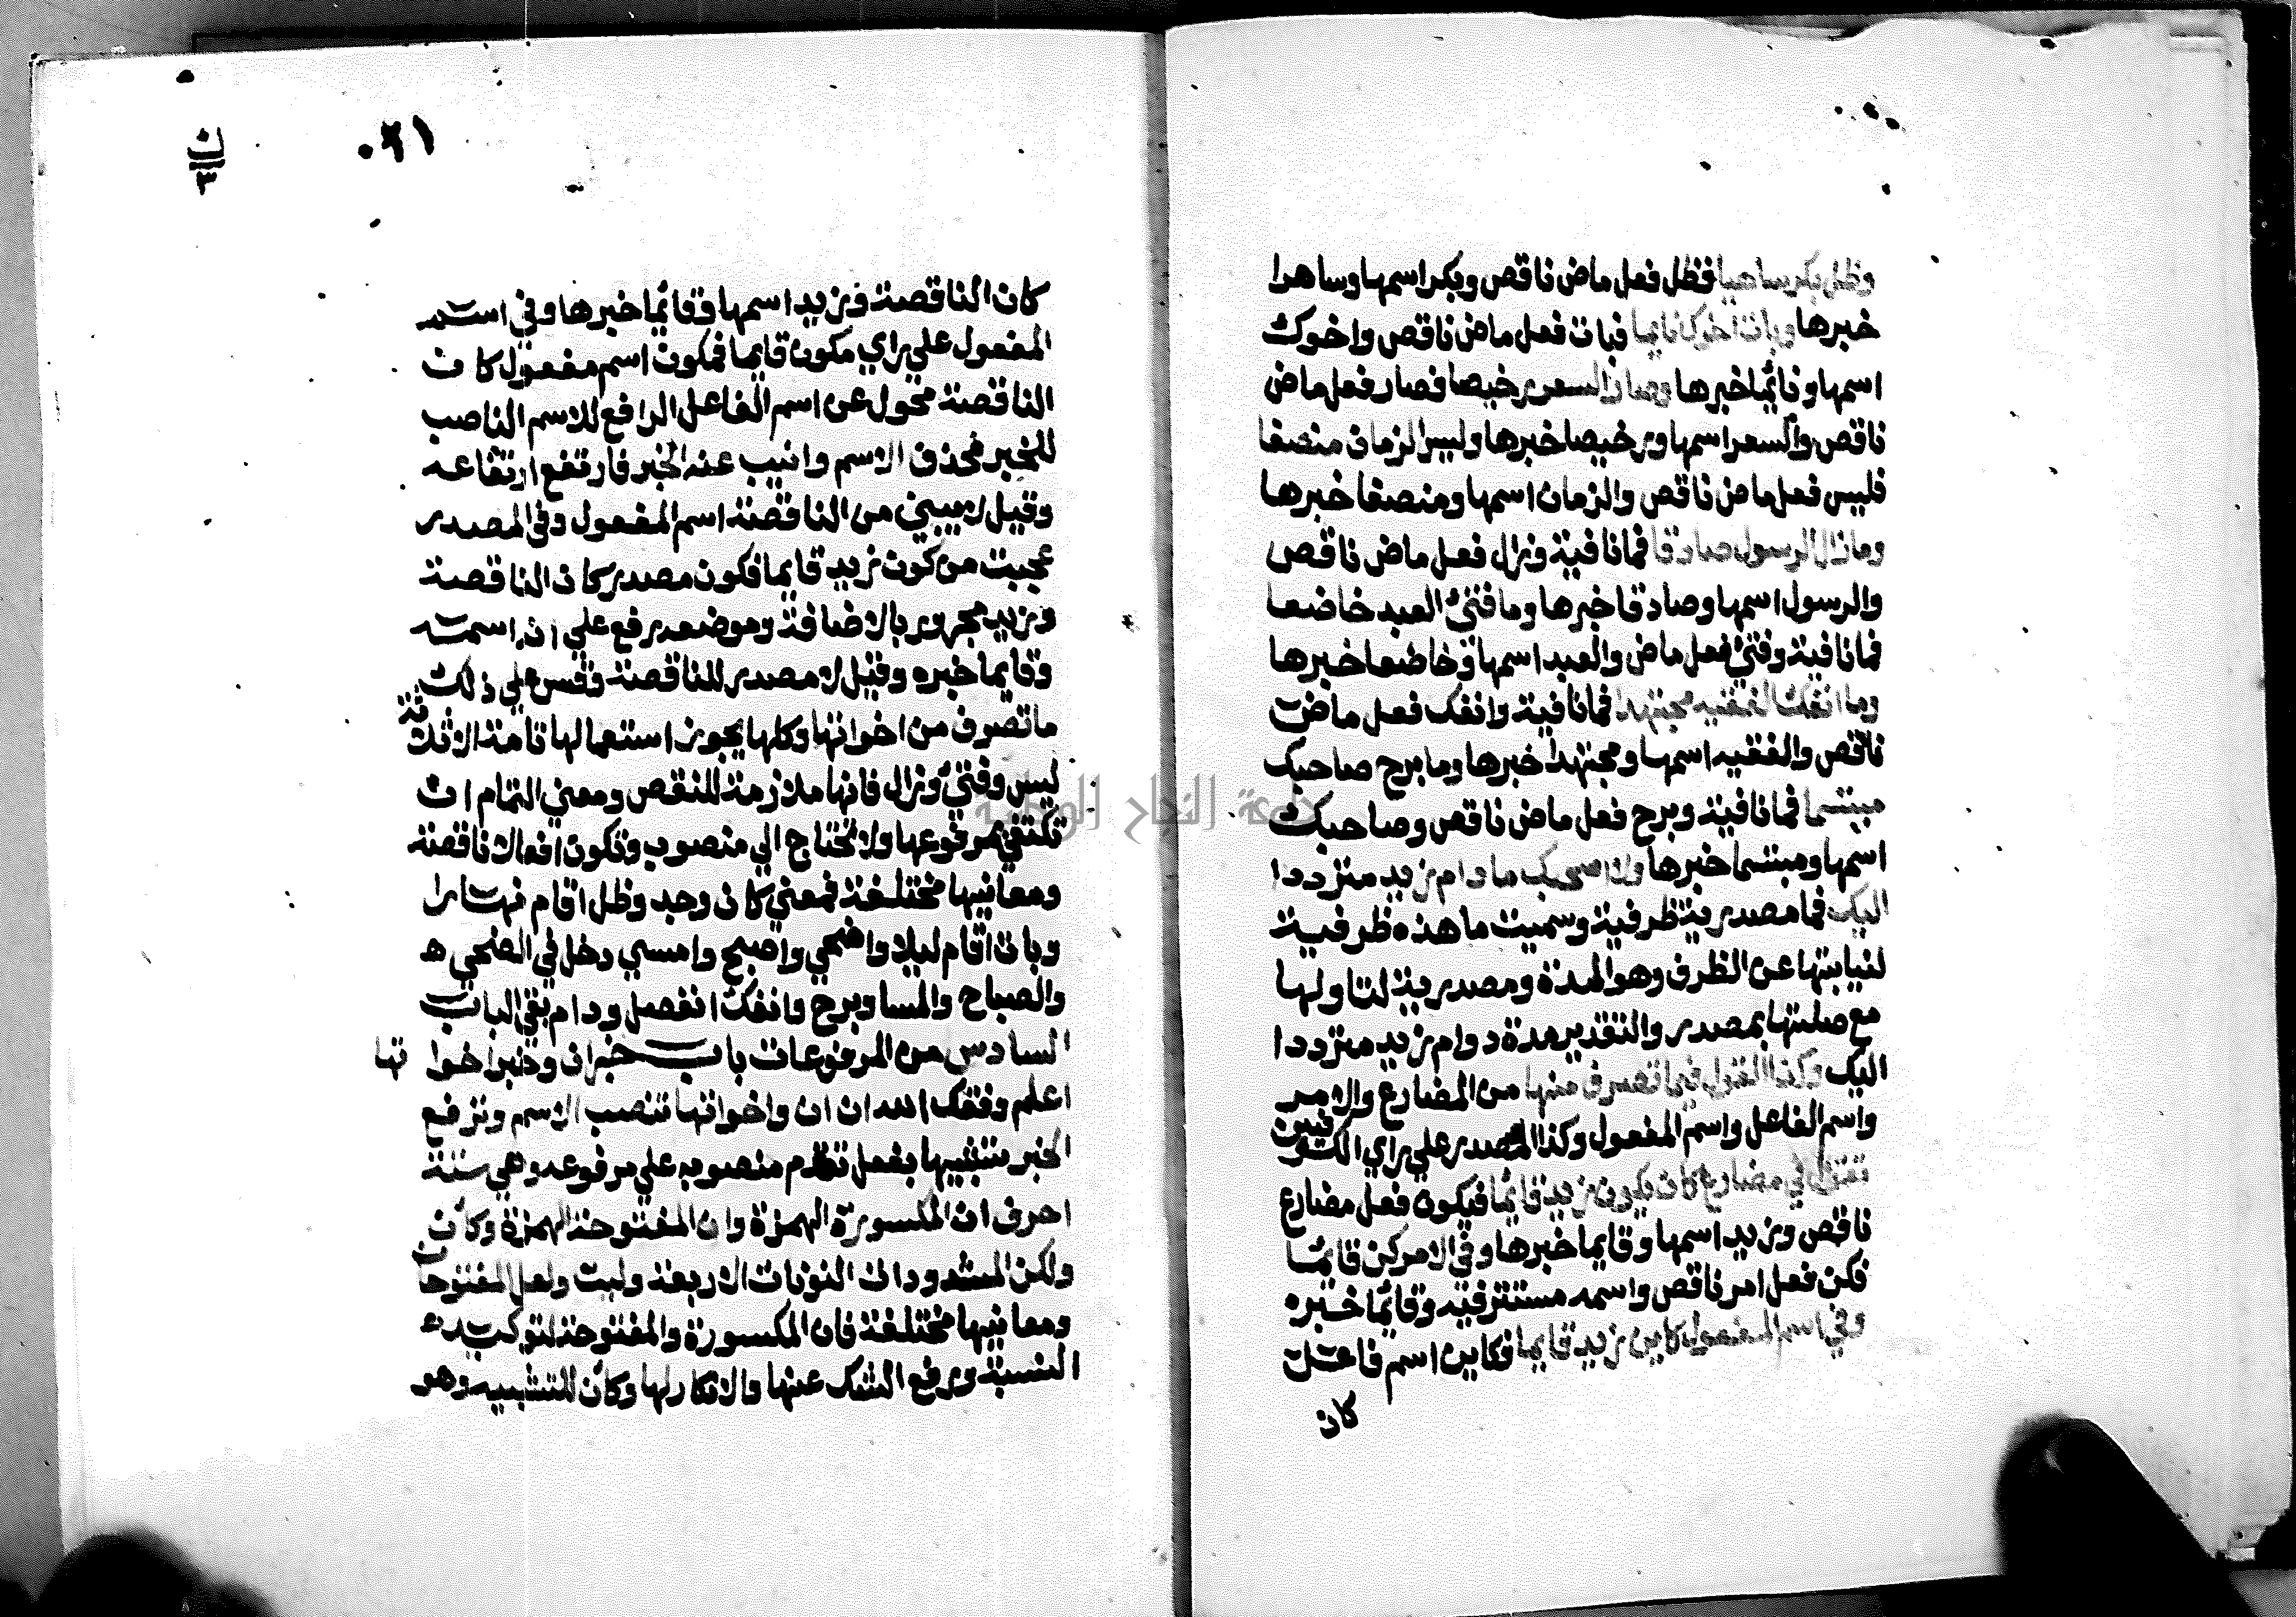 وظل بكر ساهرا فظل فعل ماض ناقص وبكر اسمها وساهرا
خبرها وبات اخوك نايما فبات فعل ماض ناقص واخوك
اسمها ونائما خبرها وصار السعر رخيصا فصار فعل ماض
ناقص والسعر اسمها ورخيصا خبرها وليس الزمان منصفا
فليس فعل ماض ناقص والزمان اسمها ومنصفا خبرها
ومازال الرسول صادقا فما نافية وزال فعل ماض ناقص
والرسول اسمها وصادقا خبرها وما فتئ العبد خاضعا
فما نافية وفتئ فعل ماض والعبد اسمها وخاضعا خبرها
وما انفك الفقيه مجتهدا فما نافية وانفك فعل ماض
ناقص والفقيه اسمها ومجتهدا خبرها وما برح صاحبك
مبتسما فما نافية وبرح فعل ماض ناقص وصاحبك
اسمها ومبتسما خبرها ولا اصحبك ما دام زيد مترددا
اليك فما مصدرية ظرفية وسميت ما هذه ظرفية
لنيابتها عن الظرف وهو المدة ومصدرية لتاولها
مع صلتها بمصدر والتقدير مدة دوام زيد مترددا
اليك وكذا القول فيما تصرف منها من المضارع والامر
واسم الفاعل واسم المفعول وكذا المصدر علي راي الكوفيين
تقول في مضارع كان يكون زيد قائما فيكون فعل مضارع
ناقص وزيد اسمها وقايما خبرها وفي الامر كن قائما
فكن فعل امر ناقص واسمه مستتر فيه وقائما خبره
وفي اسم المفعول كاين زيد قايما فكاين اسم فاعل
كان
٠٢١
ن
٣
كان الناقصة وزيد اسمها وقائما خبرها وفي اسم
المفعول علي راي مكون قايما فمكون اسم مفعول كان
الناقصة محول عن اسم الفاعل الرافع للاسم الناصب
للخبر فحذف الاسم وانيب عنه الخبر فارتفع ارتفاعه
وقيل لا يبني من الناقصة اسم المفعول وفي المصدر
عجبت من كون زيد قايما فكون مصدر كان الناقصة
وزيد مجرور بالاضافة وموضعه رفع علي انه اسمه
وقايما خبره وقيل لا مصدر للناقصة وقس علي ذلك
ما تصرف من اخواتها وكلها يجوز استعمالها تامة الا ثلاثة
ليس وفتئ وزال فانها ملازمة للنقص ومعني التمام ان
تكتفي بمرفوعها ولا تحتاج الي منصوب وتكون افعالا ناقصة
ومعانيها مختلفة فمعني كان وجد وظل اقام نهارا
وبات اقام ليلا واضحي واصبح وامسي دخل في الضحي
والصباح والمسا وبرح وانفك انفصل ودام بقي الباب
السادس من المرفوعات باب خبر ان وخبر اخواتها
اعلم وفقك الله ان ان واخواتها تنصب الاسم وترفع
الخبر تشبيها بفعل تقدم منصوبه علي مرفوعه وهي ستة
احرف ان المكسورة الهمزة وان المفتوحة الهمزة وكأن
ولكن المشدودات النونات الاربعة وليت ولعل المفتوحات
ومعانيها مختلفة فان المكسورة والمفتوحة لتوكيد
النسبة ورفع الشك عنها والانكار لها وكأن للتشبيه وهو
جامعة النجاح الوطنية